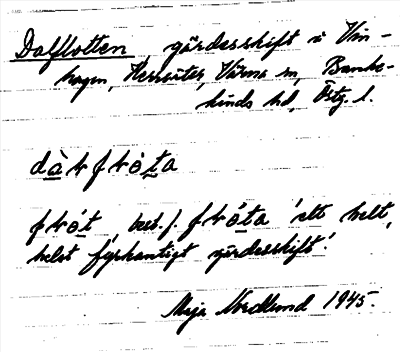 Dalflotten, gärdesskift i Vin-
hagen, Herrsäter, Värna sn, Banke-
kinds hd, Östg. l.
dàƚfƚòta
fƚót, best. f. fƚóta 'ett helt,
helst fyrkantigt gärdesskift'.
Maja Nordlund 1945.